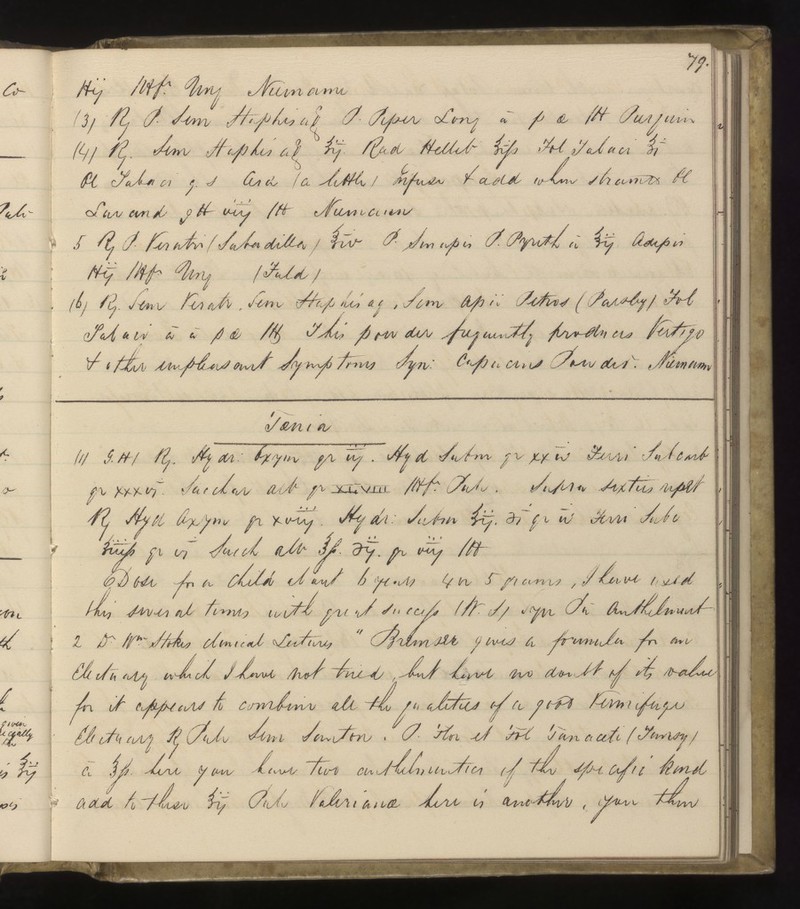 79.
℔ij M ft Ung Niemann
(3) ℞ P. Sem Staphisag P. Piper Long ā p æ M
(4) ℞. Sem Staphisag ℥ij. Rad Helleb ℥ Fol Tabaci ℥i
Ol Tabaci q s (a little) infuse & add when strained Ol
Lavand gtt viij M Niemann
5 ℞ P. Veratri (Sabadilla) ℥iv P. Sinapis P. Pyreth ā ℥ij Adipis
℔ij M ft Ung (Fuld)
(6) ℞. Sem Veratr. Sem Staphisag, Sem Apii Petros (Parsley) Fol
Tabaci ā ā p æ M This powder frequently produces Vertigo
& other unpleasant Symptoms Syn: Capucins Powder. Niemann
Tænia
(1) G.H) ℞. Hydr: Oxym gr iij. Hyd Subm gr xxiv Ferri Subcarb
gr xxxvj. Sacchar alb gr M ft Pulv. Supra sexties rept
℞ Hyd Oxym gr xviij. Hydr: Subm ʒij. ℈i gr iv Ferri Subc
ʒiiiss gr vi Sacch alb ℥ss. ℈ij. gr viij M
Dose for a Child about 6 years 4 or 5 grains, I have used
this several times with great success (W. S) syn Pu Anthelmint
2 Dr Wm Stokes clinical Lectures " Bremser gives a formula for an
Electuary which I have not tried, but have no doubt of its value
for it appears to combine all the qualities of a good Vermifuge
Electuary ℞ Pulv Sem Santon. P. Flor et Fol Tanaceti (Tansy)
ā ℥ss. here you have two anthelmintics of the specific kind
add to these ʒij Pulv Valerianæ here is another, you then
Co
given